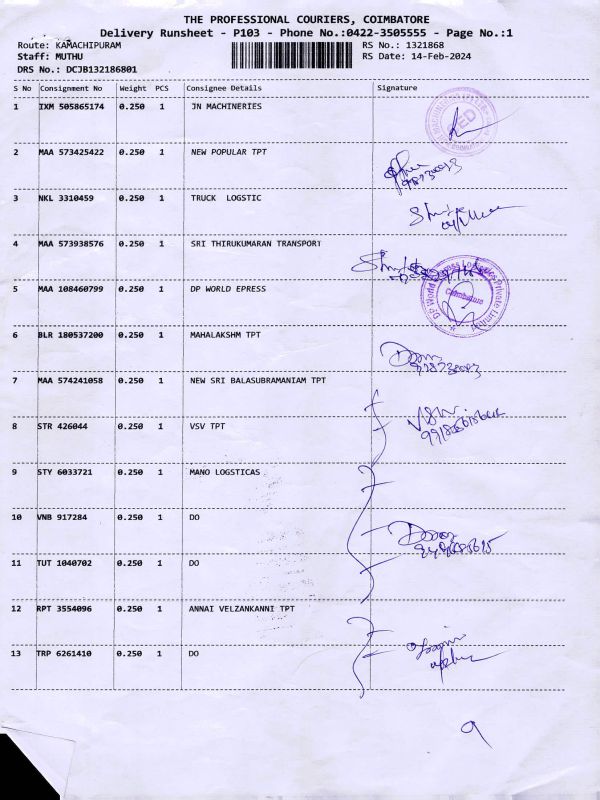 THE PROFESSIONAL COURIERS, COIMBATORE
Delivery Runsheet - P103 - Phone No.:0422-3505555 - Page No.:1
Route: KAMACHIPURAM RS No.: 1321868
Staff: MUTHU RS Date: 14-Feb-2024
DRS No.: DCJB132186801
S No Consignment No Weight PCS Consignee Details Signature
1 IXM 505865174 0.250 1 JN MACHINERIES
2 MAA 573425422 0.250 1 NEW POPULAR TPT
3 NKL 3310459 0.250 1 TRUCK LOGSTIC
4 MAA 573938576 0.250 1 SRI THIRUKUMARAN TRANSPORT
5 MAA 108460799 0.250 1 DP WORLD EPRESS
DP World Express Logistics Private Limited
Coimbatore
6 BLR 180537200 0.250 1 MAHALAKSHM TPT
7 MAA 574241058 0.250 1 NEW SRI BALASUBRAMANIAM TPT
8 STR 426044 0.250 1 VSV TPT
9 STY 6033721 0.250 1 MANO LOGSTICAS
10 VNB 917284 0.250 1 DO
11 TUT 1040702 0.250 1 DO
12 RPT 3554096 0.250 1 ANNAI VELZANKANNI TPT
13 TRP 6261410 0.250 1 DO
9